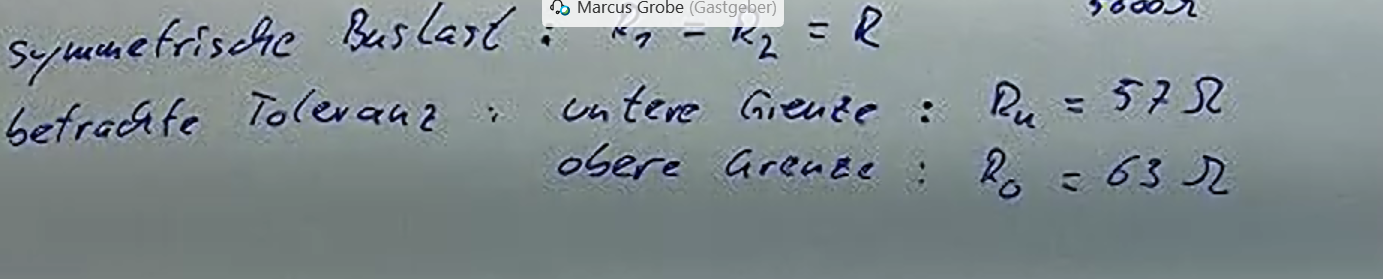 Marcus Grobe (Gastgeber)
symmetrische Buslast : R₁ = R₂ = R
betrachte Toleranz : untere Grenze : Rᵤ = 57 Ω
obere Grenze : R₀ = 63 Ω